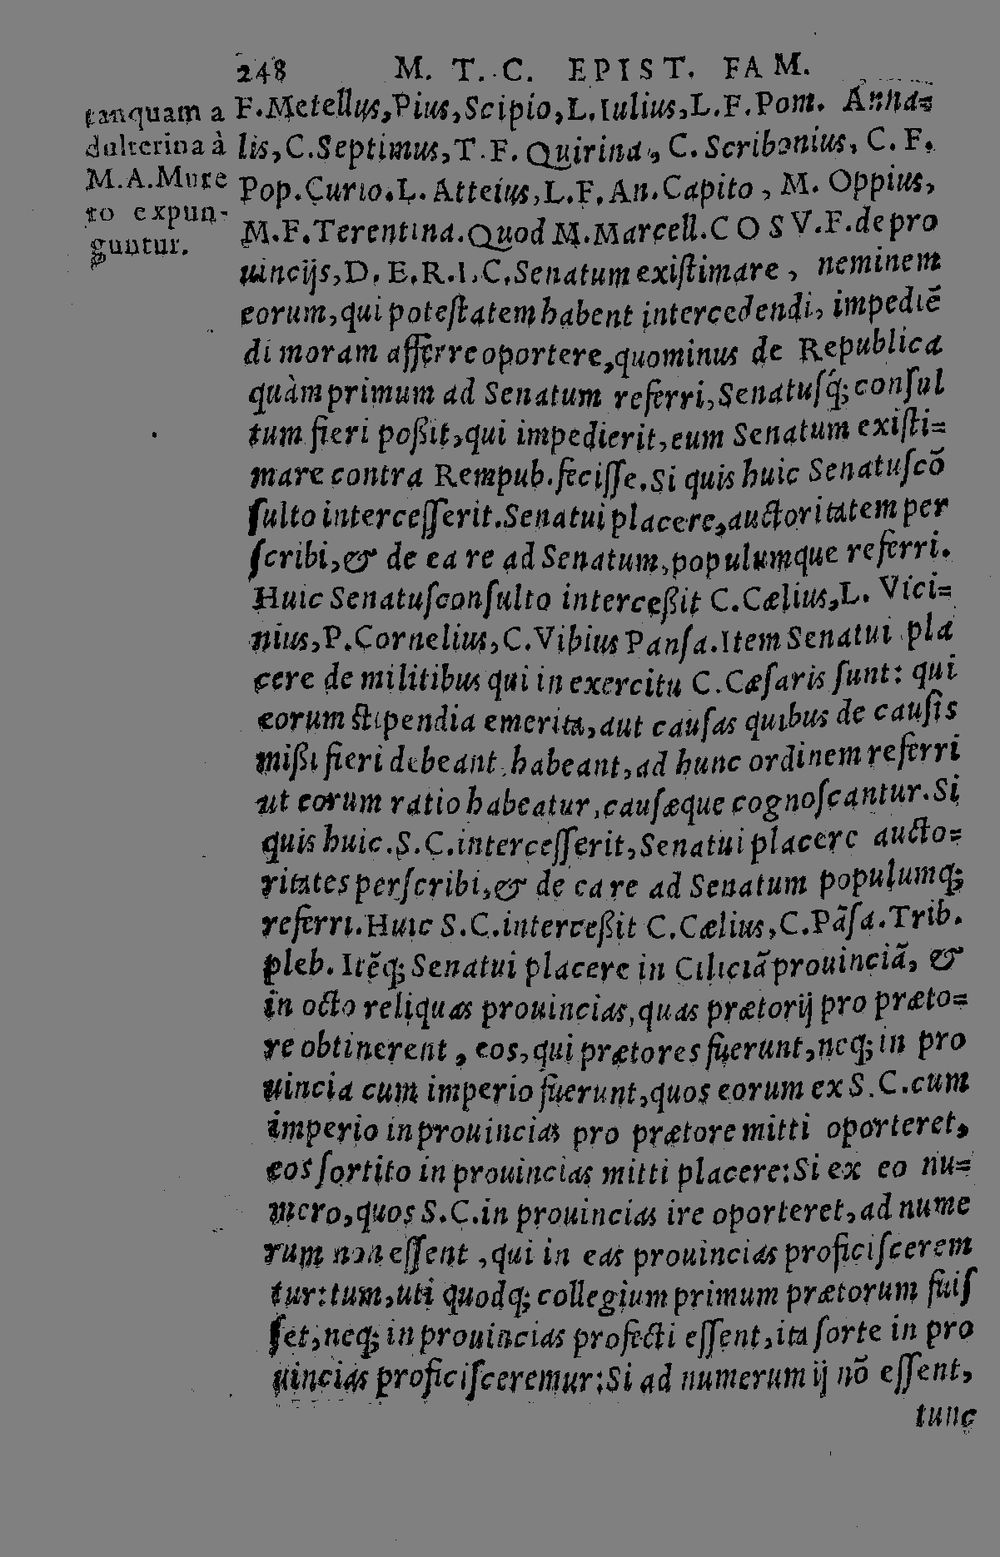 248 M. T. C. EPIST. FAM.
tanquam a
dulterina à
M.A.Mure
to expun-
guntur.
F.Metellus,Pius,Scipio,L.Iulius,L.F.Pom. Anna=
lis,C.Septimus,T.F.Quirina, C.Scribonius, C.F.
Pop.Curio.L.Atteius,L.F.An.Capito, M. Oppius,
M.F.Terentina.Quod M.Marcell.COS V.F.de pro
uincijs,D.E.R.I.C.Senatum existimare, neminem
eorum,qui potestatem habent intercedendi, impediẽ
di moram afferre oportere,quominus de Republica
quàm primum ad Senatum referri,Senatusq́;consul
tum fieri poßit,qui impedierit,eum Senatum existi=
mare contra Rempub.fecisse.Si quis huic Senatuscõ
sulto intercesserit.Senatui placere,auctoritatem per
scribi,& de ea re ad Senatum,populumque referri.
Huic Senatusconsulto interceßit C.Cælius,L. Vici=
nius,P.Cornelius,C.Vibius Pansa.Item Senatui pla
cere de militibus qui in exercitu C.Cæsaris sunt: qui
eorum stipendia emerita,aut causas quibus de causis
mißi fieri debeant habeant,ad hunc ordinem referri
ut eorum ratio habeatur,causæque cognoscantur.Si
quis huic.S.C.intercesserit,Senatui placere aucto=
ritates perscribi,& de ea re ad Senatum populumq;
referri.Huic S.C.interceßit C.Cælius,C.Pãsa.Trib.
pleb. Itẽq; Senatui placere in Ciliciã prouinciã, &
in octo reliquas prouincias,quas prætorij pro præto=
re obtinerent, eos,qui prætores fuerunt,neq;in pro
uincia cum imperio fuerunt,quos eorum ex S.C.cum
imperio in prouincias pro prætore mitti oporteret,
eos sortito in prouincias mitti placere:Si ex eo nu=
mero,quos S.C.in prouincias ire oporteret,ad nume
rum non essent,qui in eas prouincias proficiscerem
tur:tum,uti quodq; collegium primum prætorum fuis
set,neq;in prouincias profecti essent,ita sorte in pro
uincias proficisceremur:Si ad numerum ij nõ essent,
tunc